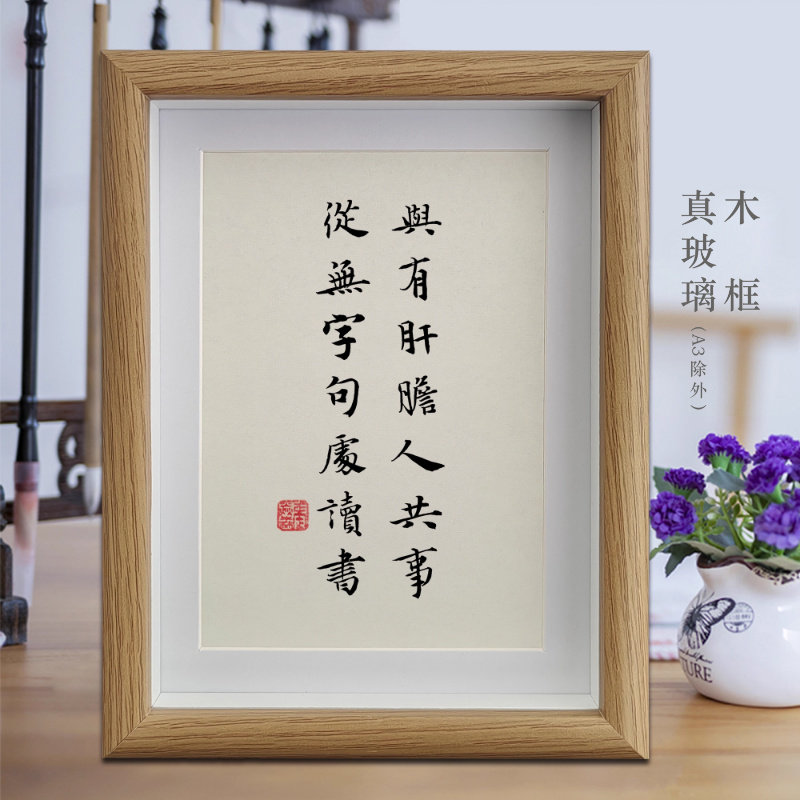 與有肝膽人共事
從無字句處讀書
木框
真玻璃
(A3除外)